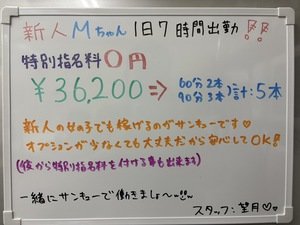 新人Mちゃん 1日7時間出勤!!
特別指名料0円
¥36,200⇒ 60分2本 90分3本 )計:5本
新人の女の子でも稼げるのがサンキューです♡
オプションが少なくても大丈夫だから安心してOK!
(後から特別指名料を付ける事も出来ます)
一緒にサンキューで働きましょ〜!!
スタッフ:望月♡